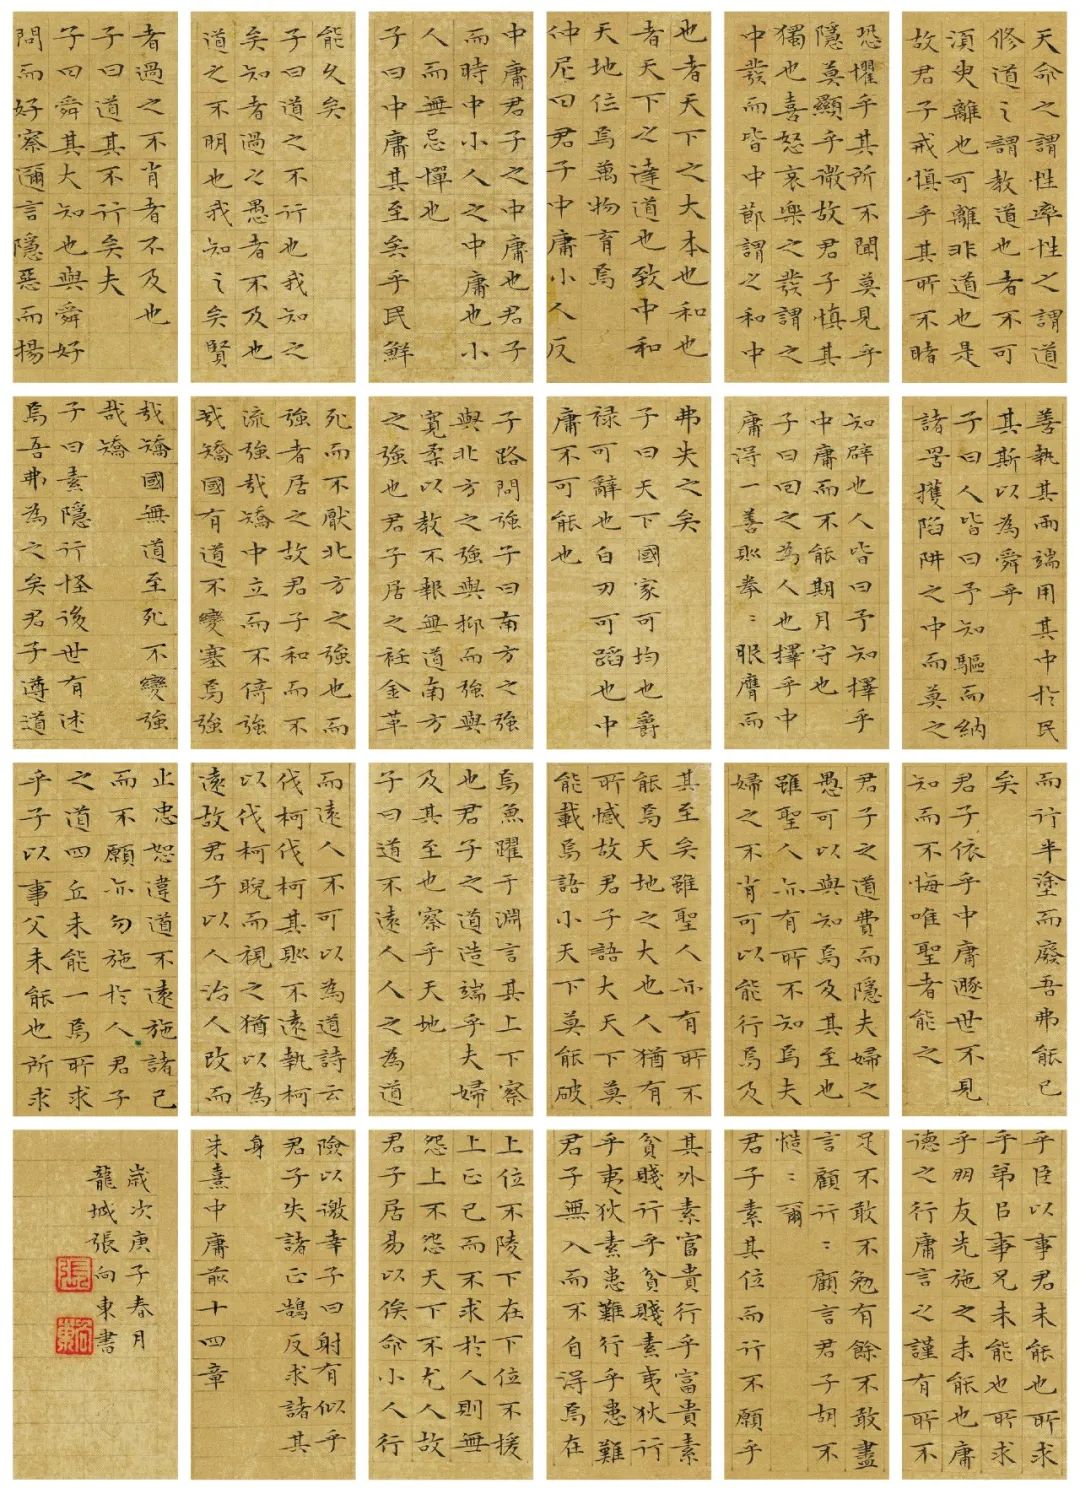 天命之謂性率性之謂道
修道之謂教道也者不可
須臾離也可離非道也是
故君子戒慎乎其所不睹
恐懼乎其所不聞莫見乎
隱莫顯乎微故君子慎其
獨也喜怒哀樂之發謂之
中發而皆中節謂之和中
也者天下之大本也和也
者天下之達道也致中和
天地位焉萬物育焉
仲尼曰君子中庸小人反
中庸君子之中庸也君子
而時中小人之中庸也小
人而無忌憚也
子曰中庸其至矣乎民鮮
能久矣
子曰道之不行也我知之
矣知者過之愚者不及也
道之不明也我知之矣賢
者過之不肖者不及也
子曰道其不行矣夫
子曰舜其大知也與舜好
問而好察邇言隱惡而揚
善執其兩端用其中於民
其斯以為舜乎
子曰人皆曰予知驅而納
諸罟擭陷阱之中而莫之
知辟也人皆曰予知擇乎
中庸而不能期月守也
子曰回之為人也擇乎中
庸得一善則拳〻服膺而
弗失之矣
子曰天下國家可均也爵
祿可辭也白刃可蹈也中
庸不可能也
子路問強子曰南方之強
與北方之強與抑而強與
寬柔以教不報無道南方
之強也君子居之衽金革
死而不厭北方之強也而
強者居之故君子和而不
流強哉矯中立而不倚強
哉矯國有道不變塞焉強
哉矯國無道至死不變強
哉矯
子曰素隱行怪後世有述
焉吾弗為之矣君子遵道
而行半塗而廢吾弗能已
矣
君子依乎中庸遯世不見
知而不悔唯聖者能之
君子之道費而隱夫婦之
愚可以與知焉及其至也
雖聖人亦有所不知焉夫
婦之不肖可以能行焉及
其至矣雖聖人亦有所不
能焉天地之大也人猶有
所憾故君子語大天下莫
能載焉語小天下莫能破
焉魚躍于淵言其上下察
也君子之道造端乎夫婦
及其至也察乎天地
子曰道不遠人人之為道
而遠人不可以為道詩云
伐柯伐柯其則不遠執柯
以伐柯睨而視之猶以為
遠故君子以人治人改而
止忠恕違道不遠施諸己
而不願亦勿施於人君子
之道四丘未能一焉所求
乎子以事父未能也所求
乎臣以事君未能也所求
乎弟以事兄未能也所求
乎朋友先施之未能也庸
德之行庸言之謹有所不
足不敢不勉有餘不敢盡
言顧行〻顧言君子胡不
慥〻爾
君子素其位而行不願乎
其外素富貴行乎富貴素
貧賤行乎貧賤素夷狄行
乎夷狄素患難行乎患難
君子無入而不自得焉在
上位不陵下在下位不援
上正己而不求於人則無
怨上不怨天下不尤人故
君子居易以俟命小人行
險以邀幸子曰射有似乎
君子失諸正鵠反求諸其
身
朱熹中庸前十四章
歲次庚子春月
龍城張向東書
張
向東